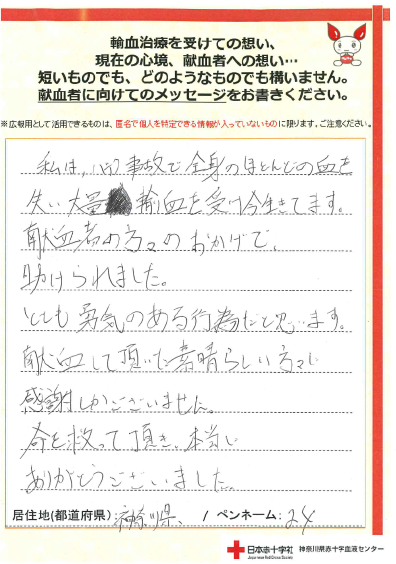 輸血治療を受けての想い、
現在の心境、献血者への想い…
短いものでも、どのようなものでも構いません。
献血者に向けてのメッセージをお書きください。
※広報用として活用できるものは、匿名で個人を特定できる情報が入っていないものに限ります。ご注意ください。
私は、バイク事故で全身のほとんどの血を
失い大量輸血を受け今生きてます。
献血者の方々のおかげで、
助けられました。
とても勇気のある行為だと思います。
献血して頂いた素晴らしい方々に
感謝しかございません。
命を救って頂き、本当に
ありがとうございました。
居住地(都道府県) 神奈川県、 / ペンネーム: 24
日本赤十字社 神奈川県赤十字血液センター
Japanese Red Cross Society